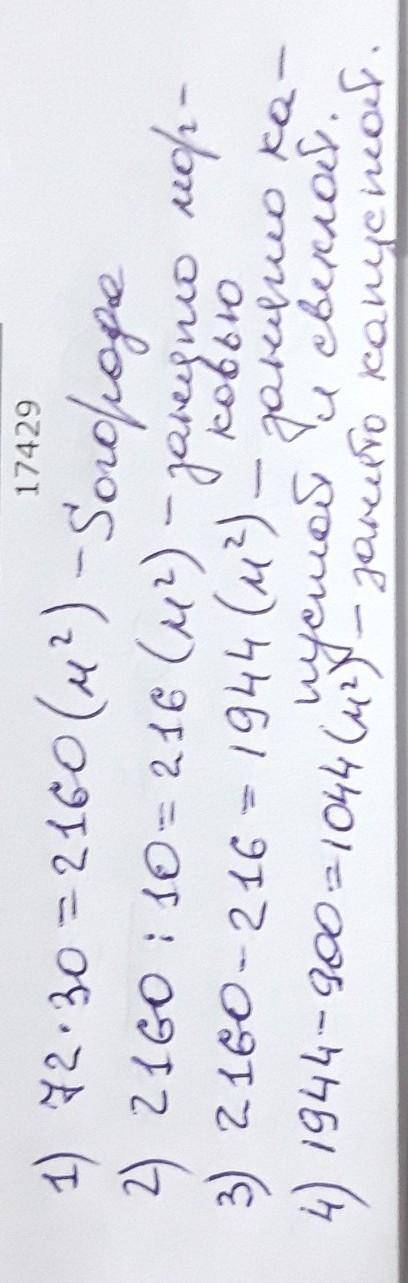 17429
1) 72·30=2160(м²) – Sогорода
2) 2160:10=216(м²) – занято мор-
ковью
3) 2160-216=1944(м²) – занято ка-
пустой и свеклой.
4) 1944-900=1044(м²) – занято капустой.